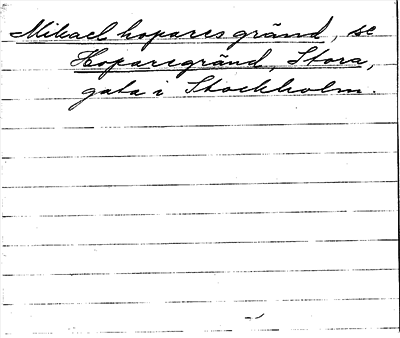 Mikael hopares gränd, se
Hoparegränd, Stora,
gata i Stockholm.